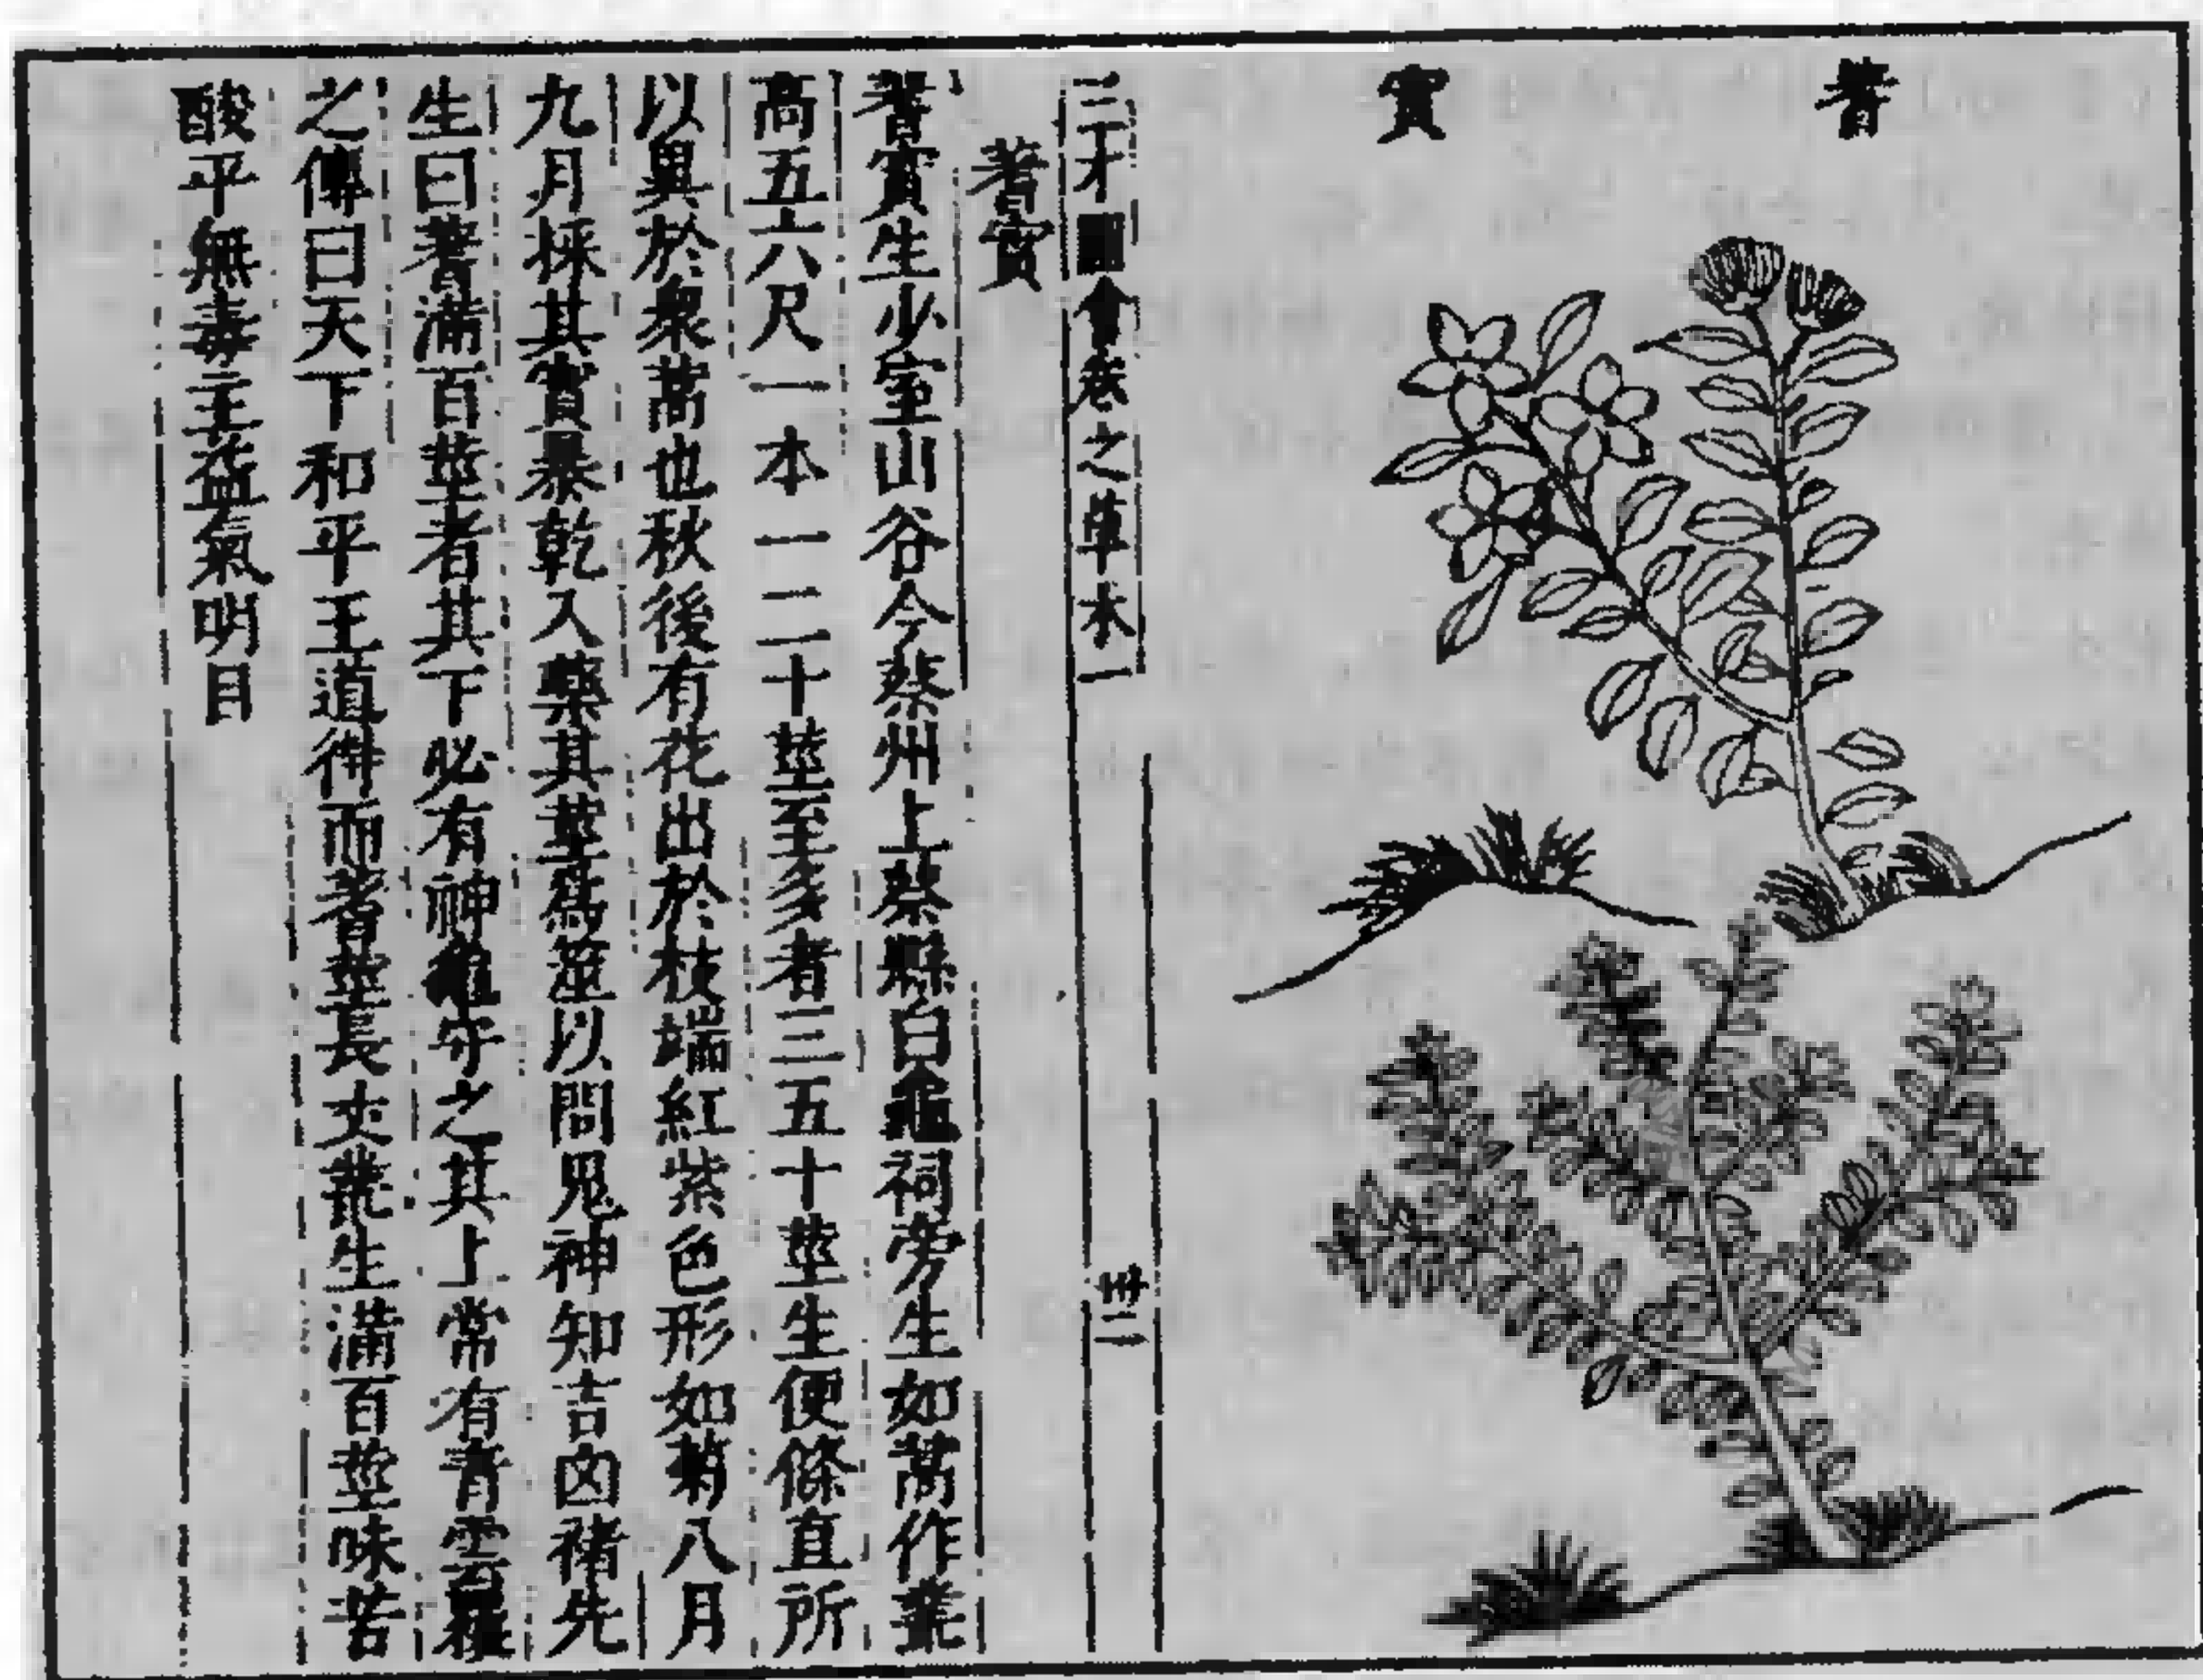 蓍實
三才圖會卷之草木一
卅二
蓍實
蓍實生少室山谷今蔡州上蔡縣白龜祠旁生如蒿作叢
高五六尺一本一二十莖至多者三五十莖生便條直所
以異於衆蒿也秋後有花出於枝端紅紫色形如菊八月
九月採其實暴乾入藥其莖爲筮以問鬼神知吉凶禇先
生曰蓍滿百莖者其下必有神龜守之其上常有青雲覆
之傳曰天下和平王道得而蓍莖長丈叢生滿百莖味苦
酸平無毒主益氣明目